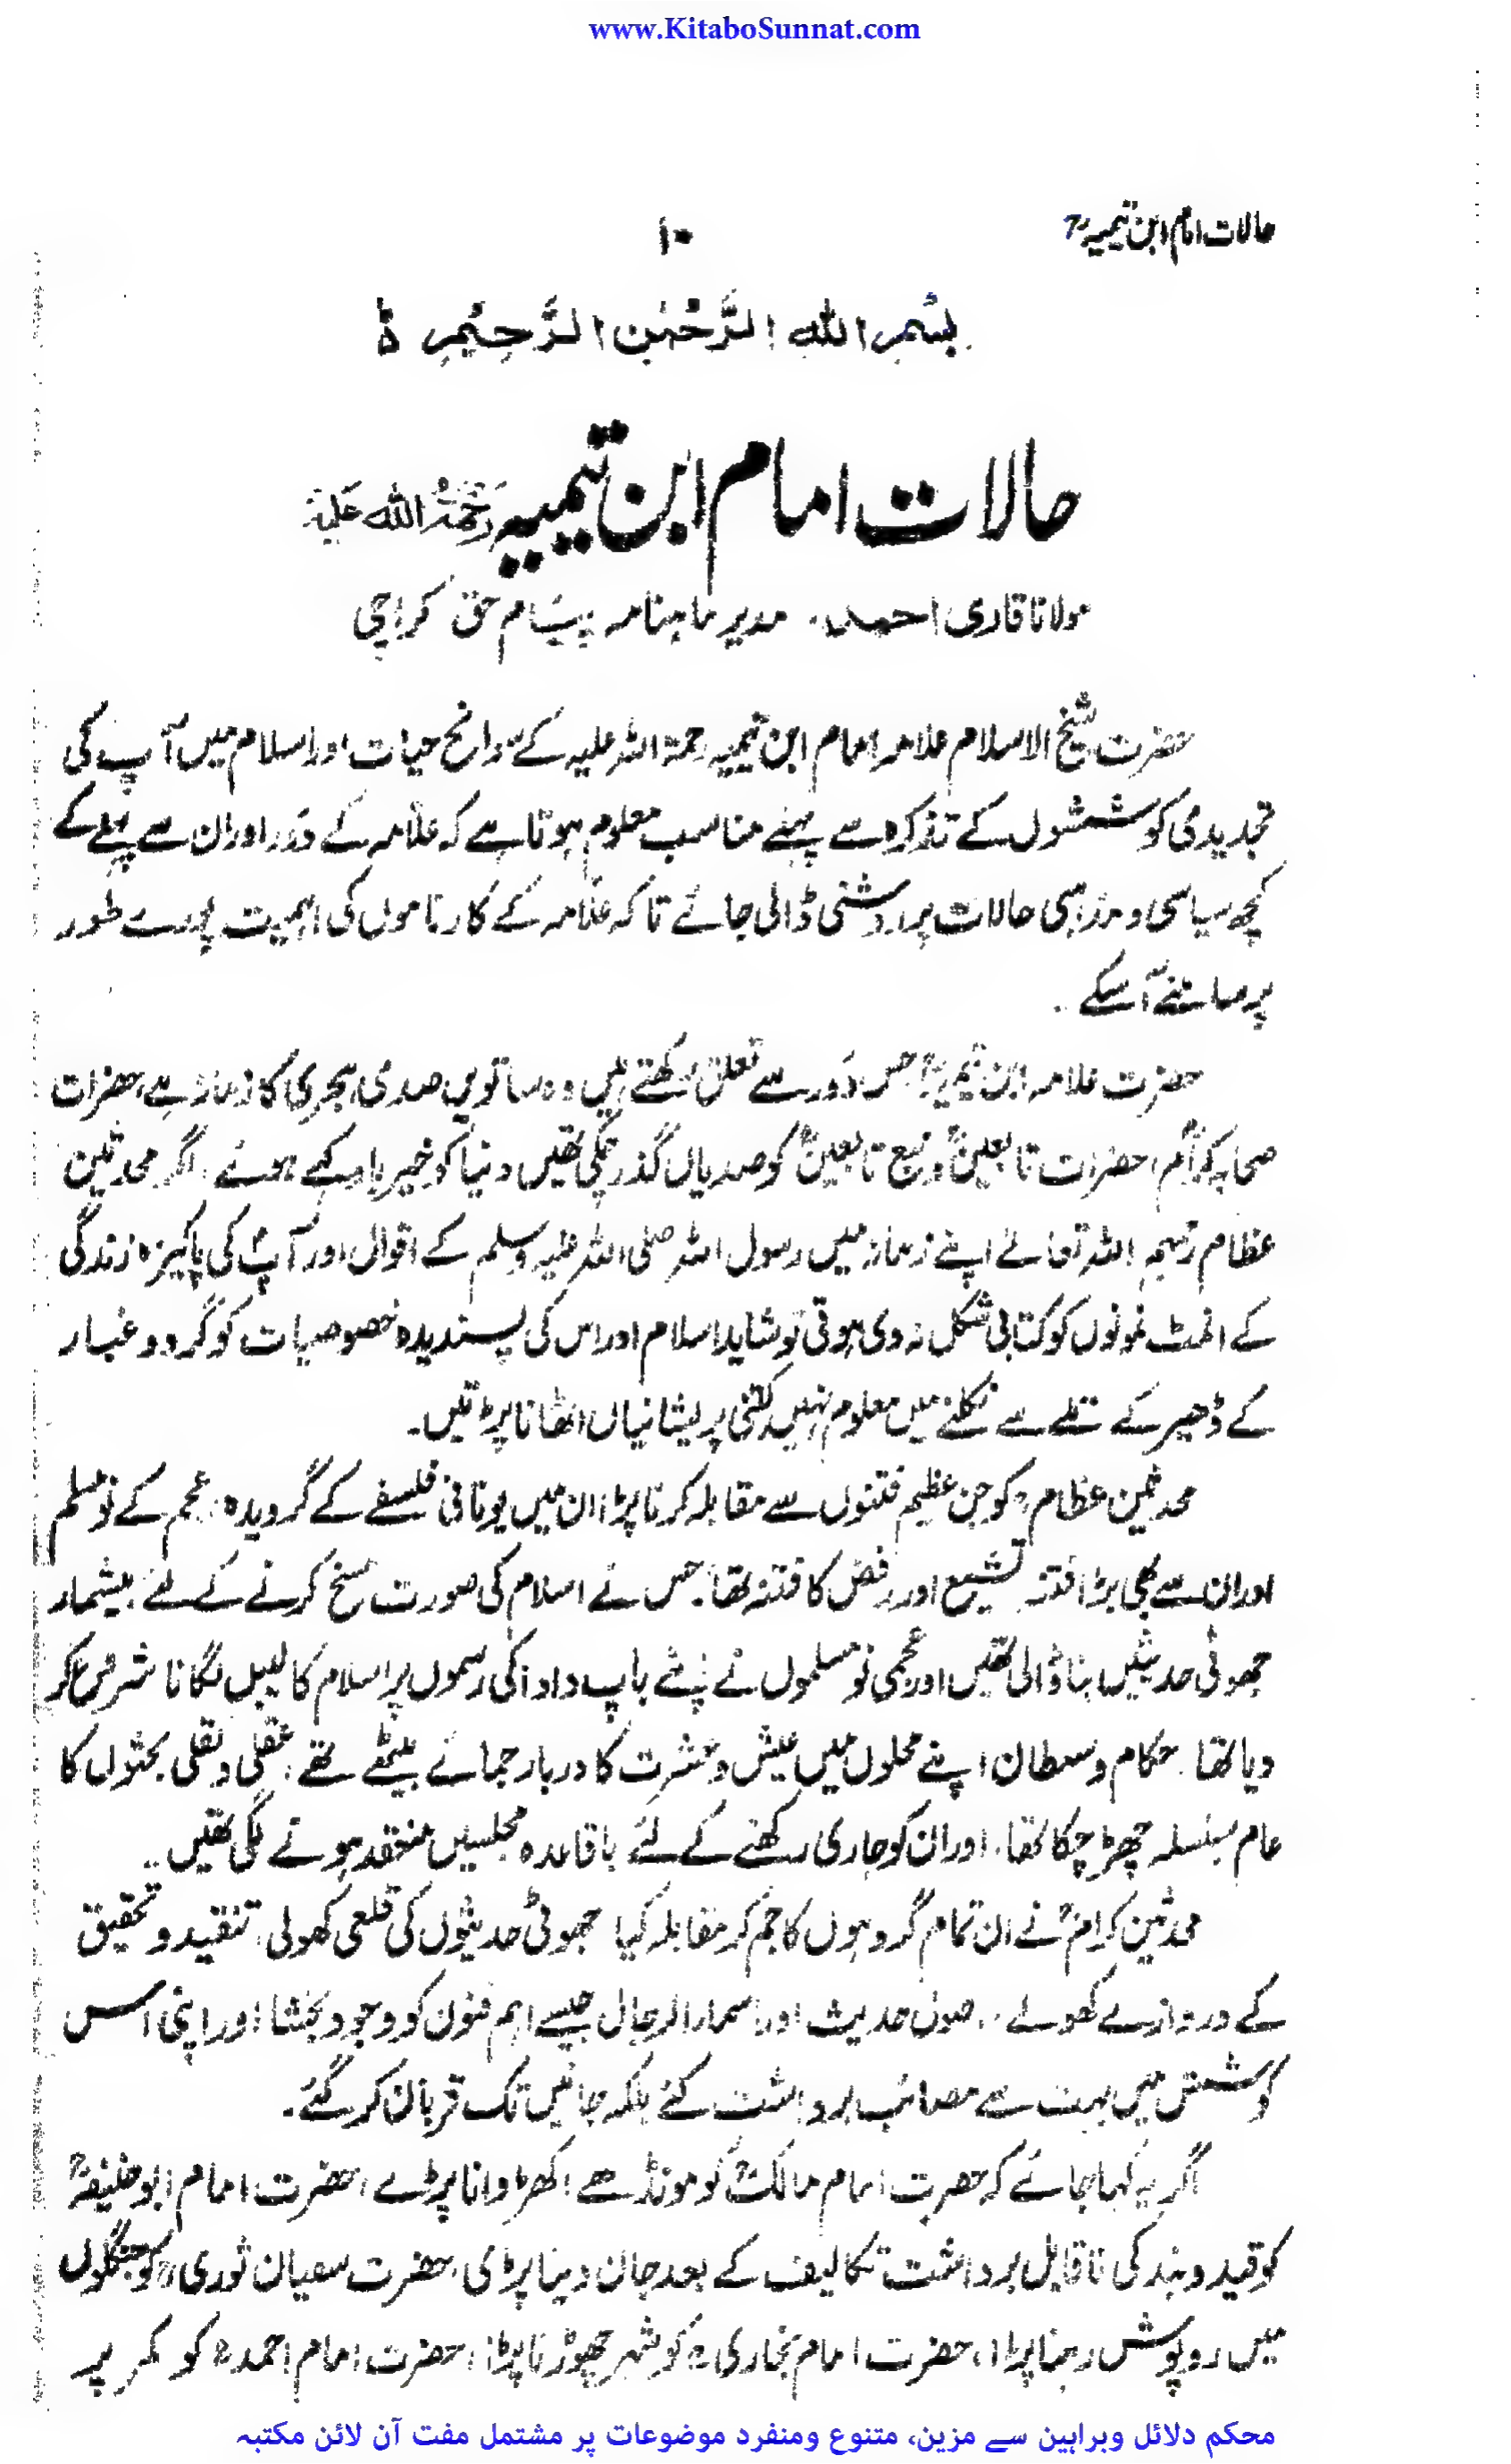 www.KitaboSunnat.com
حالات امام ابن تیمیہؒ
۱۰
بِسْمِ اللّٰهِ الرَّحْمٰنِ الرَّحِيْمِ ؕ
حالات امام ابن تیمیہ رَحْمَةُ اللّٰه عَلَيْه
مولانا قاری احمد، مدیر ماہنامہ پیام حق کراچی
حضرت شیخ الاسلام علامہ امام ابن تیمیہ رحمۃ اللہ علیہ کے سوانح حیات اور اسلام میں آپ کی
تجدیدی کوششوں کے تذکرہ سے پہلے مناسب معلوم ہوتا ہے کہ علامہ کے دَور اور ان سے پہلے کے
کچھ سیاسی و مذہبی حالات پر روشنی ڈالی جائے تاکہ علامہ کے کارناموں کی اہمیت پورے طور
پر سامنے آسکے ۔
حضرت علامہ ابن تیمیہؒ جس دَور سے تعلق رکھتے ہیں وہ ساتویں صدی ہجری کا زمانہ ہے، حضرات
صحابہ کرامؓ، حضرات تابعینؒ و تبع تابعینؒ کو صدیاں گذر چکی تھیں دنیا کو خیر باد کہے ہوئے، اگر محدثین
عظام رحمہم اللہ تعالےٰ اپنے زمانہ میں رسول اللہ صلی اللہ علیہ وسلم کے اقوال اور آپؐ کی پاکیزہ زندگی
کے انمٹ نمونوں کو کتابی شکل نہ دی ہوتی تو شاید اسلام اور اس کی پسندیدہ خصوصیات کو گرد و غبار
کے ڈھیر کے تلے سے نکلنے میں معلوم نہیں کتنی پریشانیاں اٹھانا پڑتیں۔
محدثین عظامؒ کو جن عظیم فتنوں سے مقابلہ کرنا پڑا ان میں یونانی فلسفے کے گرویدہ، عجم کے نومسلم
اور ان سے بھی بڑا فتنہ تشیع اور رفض کا فتنہ تھا۔ جس نے اسلام کی صورت مسخ کرنے کے لئے بیشمار
جھوٹی حدیثیں بنا ڈالی تھیں اور عجمی نومسلموں نے اپنے باپ دادا کی رسموں پر اسلام کا لیبل لگانا شروع کر
دیا تھا۔ حکام و سلطان اپنے محلوں میں عیش و عشرت کا دربار جمائے بیٹھے تھے، عقلی و نقلی بحثوں کا
عام سلسلہ چھڑ چکا تھا، اور ان کو جاری رکھنے کے لئے باقاعدہ مجلسیں منعقد ہونے لگی تھیں۔
محدثین کرامؒ نے ان تمام گروہوں کا جم کر مقابلہ کیا جھوٹی حدیثوں کی قلعی کھولی، تنقید و تحقیق
کے دروازے کھولے، اصول حدیث اور اسماء الرجال جیسے اہم فنون کو وجود بخشا اور اپنی اس
کوشش میں بہت سے مصائب برداشت کئے بلکہ جانیں تک قربان کر گئے۔
اگر یہ کہا جائے کہ حضرت امام مالکؒ کو مونڈھے اکھڑوانا پڑے، حضرت امام ابوحنیفہؒ
کو قید و بند کی ناقابل برداشت تکالیف کے بعد جان دینا پڑی، حضرت سفیان ثوریؒ کو جنگلوں
میں روپوش رہنا پڑا، حضرت امام بخاریؒ کو شہر چھوڑنا پڑا، حضرت امام احمدؒ کو کمر پر
محکم دلائل وبراہین سے مزین، متنوع ومنفرد موضوعات پر مشتمل مفت آن لائن مکتبہ